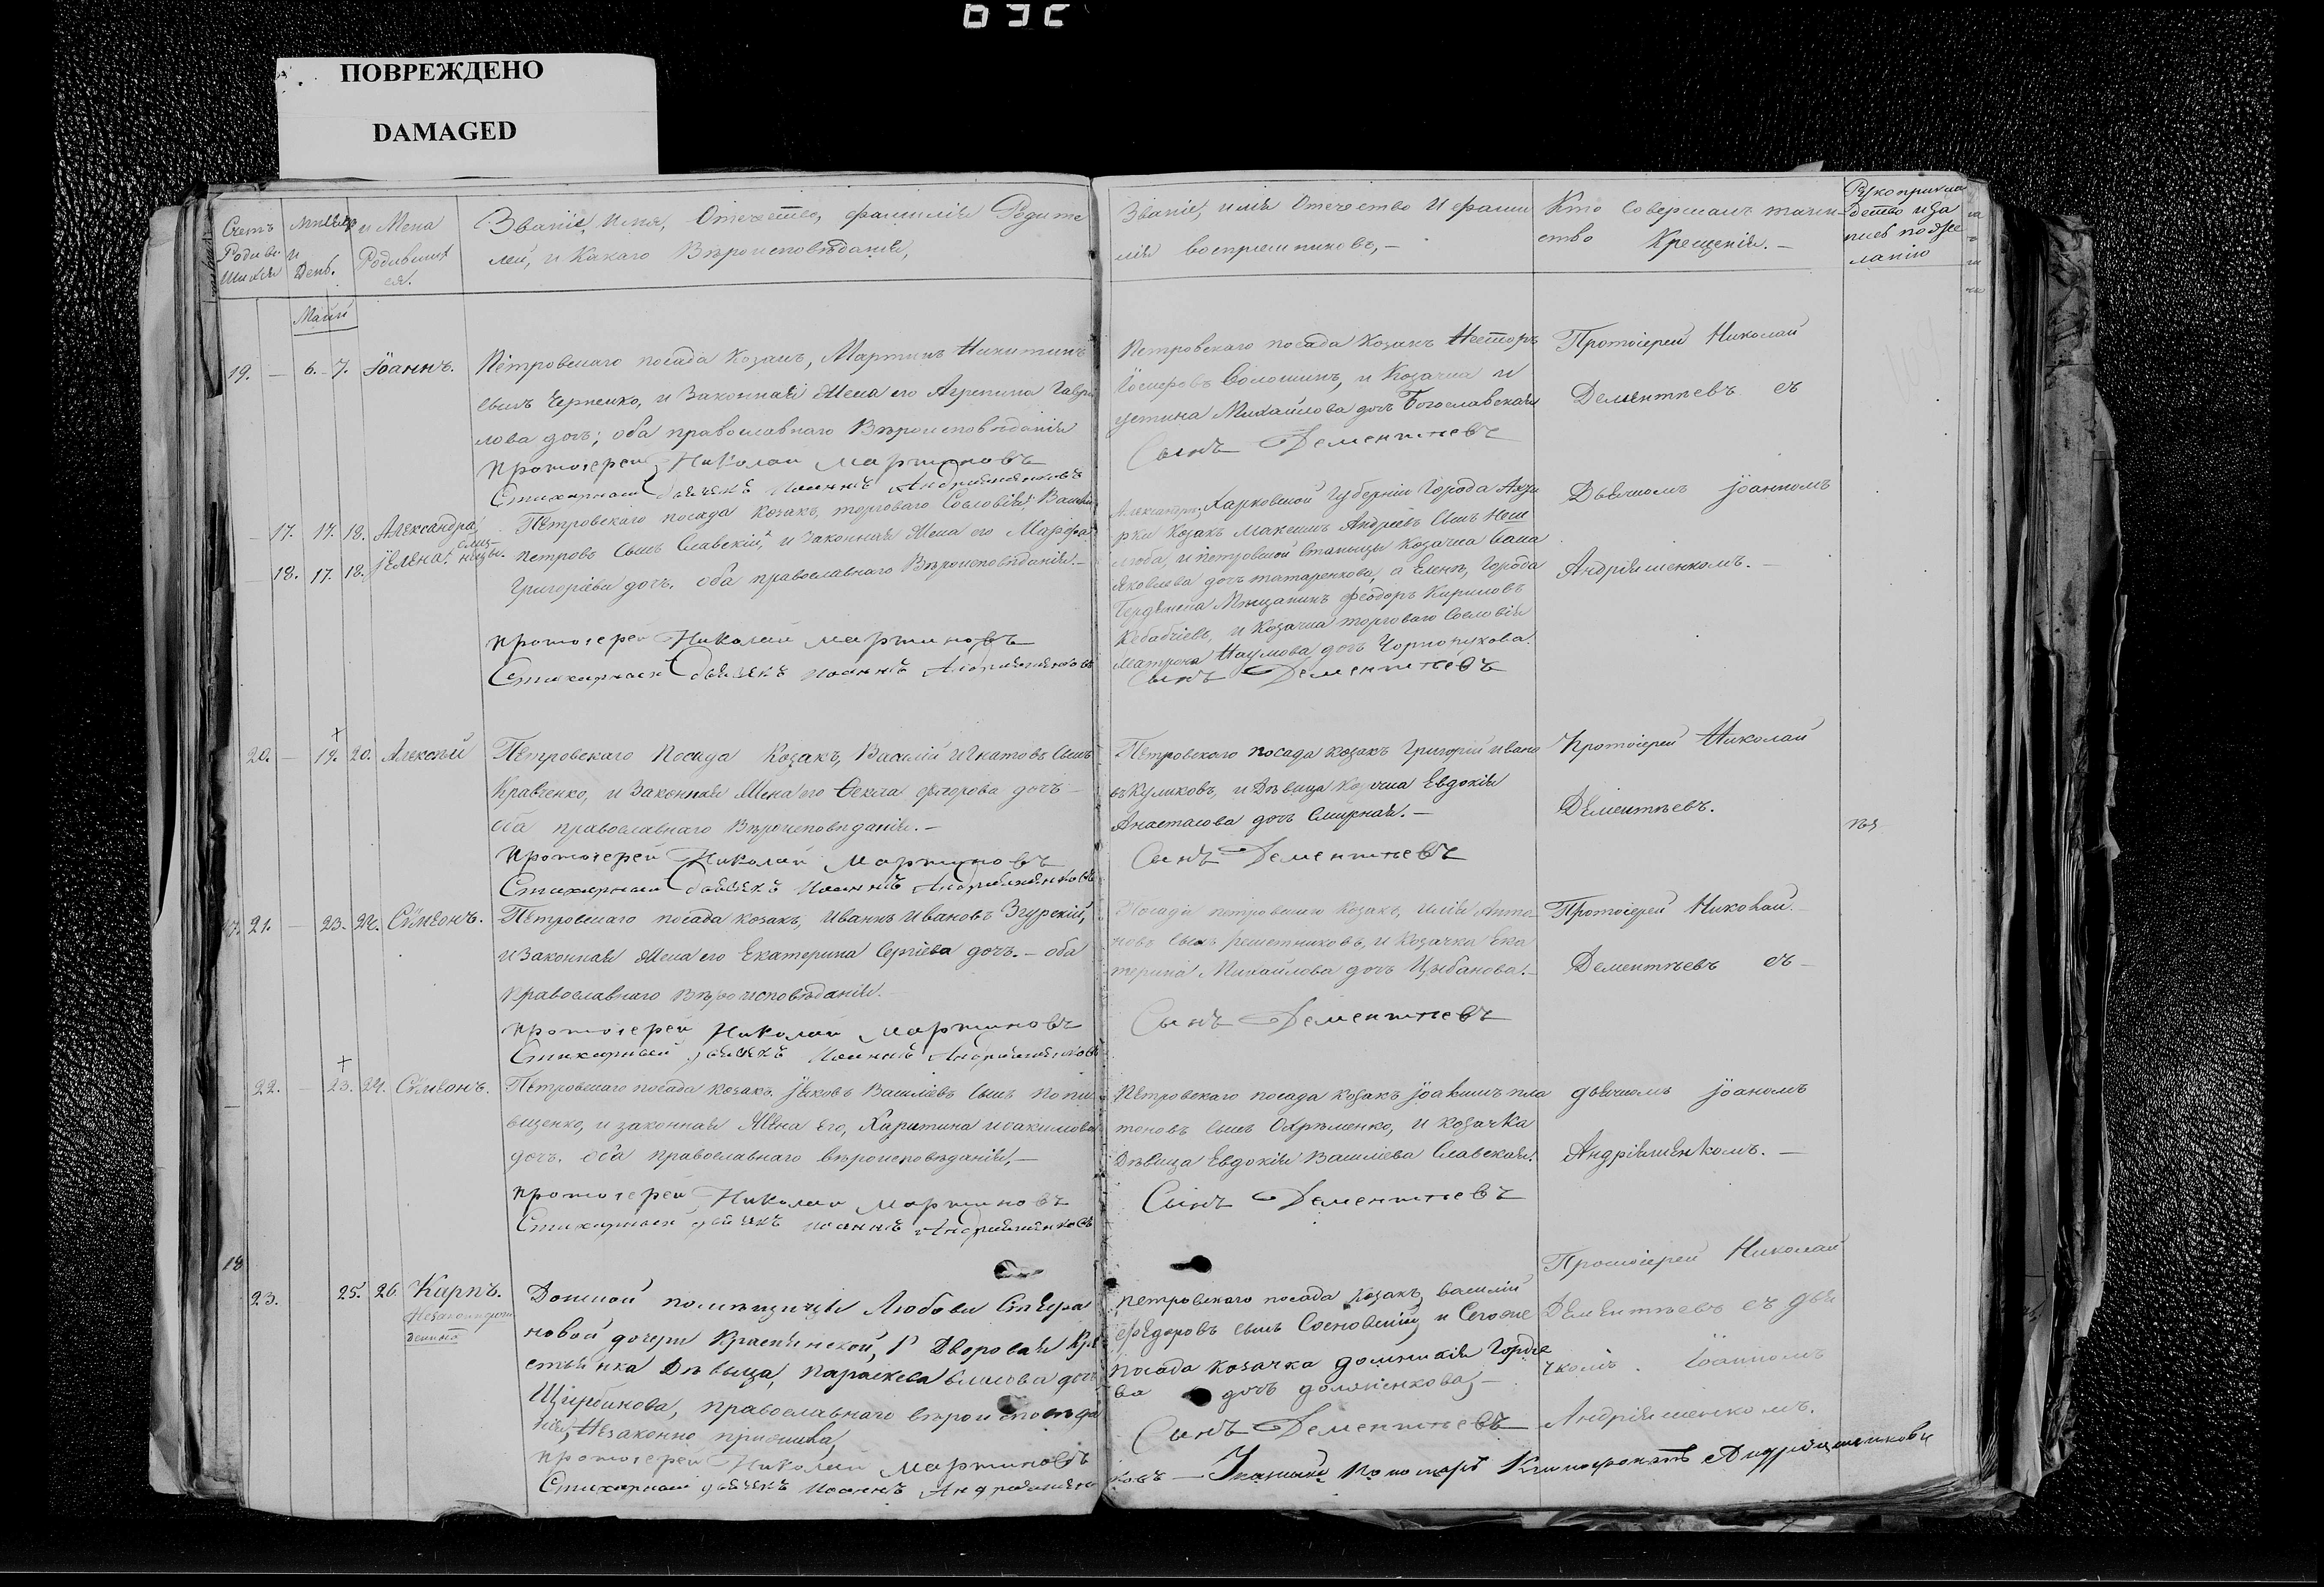 ПОВРЕЖДЕНО
DAMAGED
Счетъ
Родив
шихся
и
День.
имена
Родивших
ся.
Званіе, имя, Отечество, фамилія Родите
лей, и Какаго Вѣроисповѣданія,
Званіе, имя Отечество и фами
лія воспріемниковъ,-
Кто Совершалъ таин-
ство Крещенія.-
Рукоприкла
дство иза
пись по дже
ланію
Маій
19. - 6. 7. Іоаннъ.
Петровскаго посада Козакъ, Мартинъ Никитинъ
сынъ Черненко, и Законная Жена его Агрепина Гаври
лова дочь; оба православнаго Вѣроисповѣданія
протоіерей Николай мартиновъ
Стихарный дьячекъ Иоаннъ Андріяшенковъ
Петровскаго посада Козакъ Несторъ
Іосифовъ Солошинъ, и Козачка и
устина Михайлова дочь Богославская
Сынъ Дементьевъ
Протоіерей Николай
Дементьевъ съ
Дьячкомъ Іоанномъ
Андріяшенкомъ.-
17. 17. 18. Александра
18. 17. 18. Елена.
Петровскаго посада Козакъ, торговаго Сословія, Василій
петровъ сынъ Славскій, и Законная Жена его Марфа
Григоріева дочь. оба православнаго Вѣроисповѣданія.-
протоіерей Николай мартиновъ
Стихарный дьячекъ Иоаннъ Андріяшенковъ
Харковской Губерніи Города Ахты
рки Козакъ Максимъ Андріевъ сынъ
и петровской Станицы Козачка
Яковлева дочь татаренкова, а Елены, Города
Мѣщанинъ Феодоръ Кириловъ
и Козачка торговаго Сословія
Матрона Наумова дочь
Сынъ Дементьевъ
20. - 19. 20. Алексѣй
Петровскаго Посада Козакъ, Василій Игнатовъ сынъ
Кравченко, и Законная Жена его Фекла федорова дочь-
оба православнаго Вѣроисповѣданія.-
Протоіерей Николай Мартиновъ
Стихарный дьячекъ Иоаннъ Андріяшенковъ
Петровскаго посада козакъ Григорій ивано
въ Куликовъ, и Дѣвица Козачка Евдокія
Анастасова дочь Смирная.-
Сынъ Дементьевъ
Протоіерей Николай
Дементьевъ.
21. - 23. 24. Симеонъ.
Петровскаго посада козакъ, Иваннъ Ивановъ Згурскій,
и Законная Жена его Екатерина Сергіева дочь.- оба
Православнаго Вѣроисповѣданія.
протоіерей Николай мартиновъ
Стихарный дьячекъ Иоаннъ Андріяшенковъ
Посада петровскаго Козакъ, илія Анто
новъ сынъ решетниковъ, и Козачка Ека
терина Михайлова дочь Цыбанова.-
Сынъ Дементьевъ
Протоіерей Николай.
Дементьевъ съ-
22. - 23. 24. Симеонъ.
Петровскаго посада козакъ Іяковъ Василіевъ сынъ попи
вщенко, и законная Жена Его, Харитина иоакимова
дочь. оба православнаго вѣроисповѣданія,-
протоіерей Николай Мартиновъ
Стихарный дьячекъ Иоаннъ Андріяшенковъ
Петровскаго посада козакъ Іоакимъ пла
тоновъ сынъ Охрѣменко, и козачка
Дѣвица Евдокія Василіева Славская.
Сынъ Дементьевъ
дьячкомъ Іоаномъ
Андріяшенкомъ.-
18
23. 25. 26. Карпъ.
Донской помѣщицы Любови Степа
новой дочери Краснянской, Дворовая Кре
стьянка Дѣвица, параскева власова дочь
Щирбинова, православнаго вѣроисповѣда
нія, Незаконно прижила,
протоіерей Николай Мартиновъ
Стихарный дьячекъ Иоаннъ Андріяшен
петровскаго посада козакъ, василій
федоровъ сынъ Сосновскій, и Сегоже
посада козачка домникія Гордіе
ва дочь долженкова,-
Сынъ Дементьевъ
Протоіерей Николай
Дементьевъ съ дья
чкомъ. Іоанномъ
Андріяшенкомъ.
ковъ - Пономарь